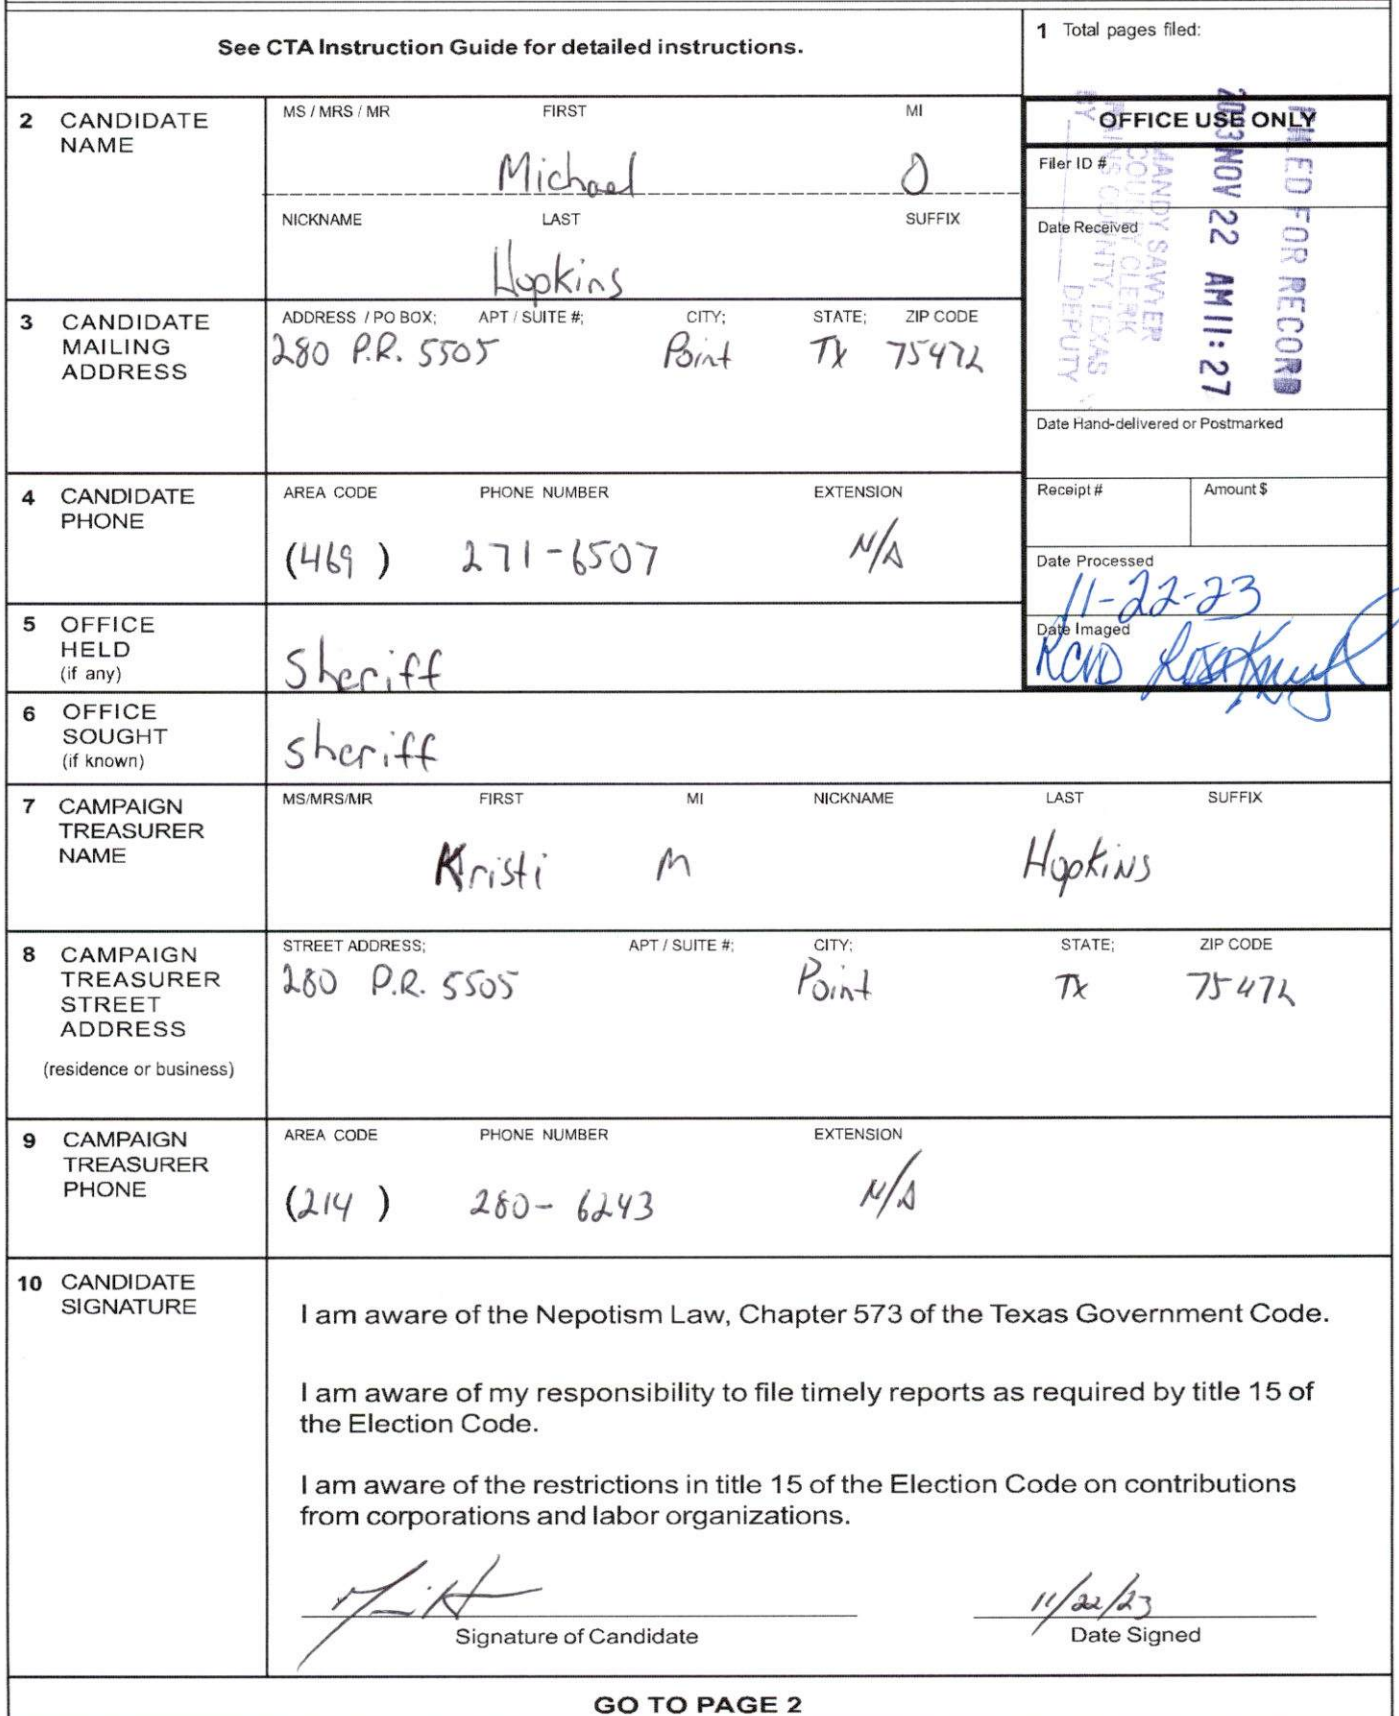 See CTA Instruction Guide for detailed instructions.
1 Total pages filed:
2 CANDIDATE NAME
MS / MRS / MR FIRST MI
Michael O
NICKNAME LAST SUFFIX
Hopkins
OFFICE USE ONLY
Filer ID #
Date Received
FILED FOR RECORD
2023 NOV 22 AM 11: 27
MANDY SAWYER
COUNTY CLERK
RAINS COUNTY, TEXAS
BY DEPUTY
Date Hand-delivered or Postmarked
Receipt # Amount $
Date Processed
11-22-23
Date Imaged
RCVD
3 CANDIDATE MAILING ADDRESS
ADDRESS / PO BOX; APT / SUITE #; CITY; STATE; ZIP CODE
280 P.R. 5505 Point Tx 75472
4 CANDIDATE PHONE
AREA CODE PHONE NUMBER EXTENSION
(469 ) 271-6507 N/A
5 OFFICE HELD (if any)
Sheriff
6 OFFICE SOUGHT (if known)
Sheriff
7 CAMPAIGN TREASURER NAME
MS/MRS/MR FIRST MI NICKNAME LAST SUFFIX
Kristi M Hopkins
8 CAMPAIGN TREASURER STREET ADDRESS
(residence or business)
STREET ADDRESS; APT / SUITE #; CITY; STATE; ZIP CODE
280 P.R. 5505 Point Tx 75472
9 CAMPAIGN TREASURER PHONE
AREA CODE PHONE NUMBER EXTENSION
(214 ) 280- 6243 N/A
10 CANDIDATE SIGNATURE
I am aware of the Nepotism Law, Chapter 573 of the Texas Government Code.
I am aware of my responsibility to file timely reports as required by title 15 of
the Election Code.
I am aware of the restrictions in title 15 of the Election Code on contributions
from corporations and labor organizations.
11/22/23
Signature of Candidate Date Signed
GO TO PAGE 2